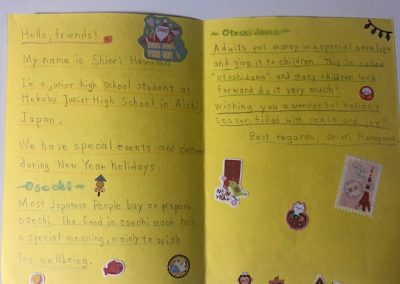 Hello, friends!
My name is Shiori Hasegawa
I'm a junior high school student at
Hokubu Junior High School in Aichi,
Japan.
We have special events and customs
during New Year holidays.
~Osechi~
Most Japanese People buy or prepare
osechi. The food in osechi each has
a special meaning, mainly to wish
for wellbeing.
~ Otoshidama ~
Adults put money in a special envelope
and give it to children. This is called
"otoshidama" and many children look
forward to it very much!
Wishing you a wonderful holiday
season filled with peace and joy!!
Best regards, Shiori Hasegawa